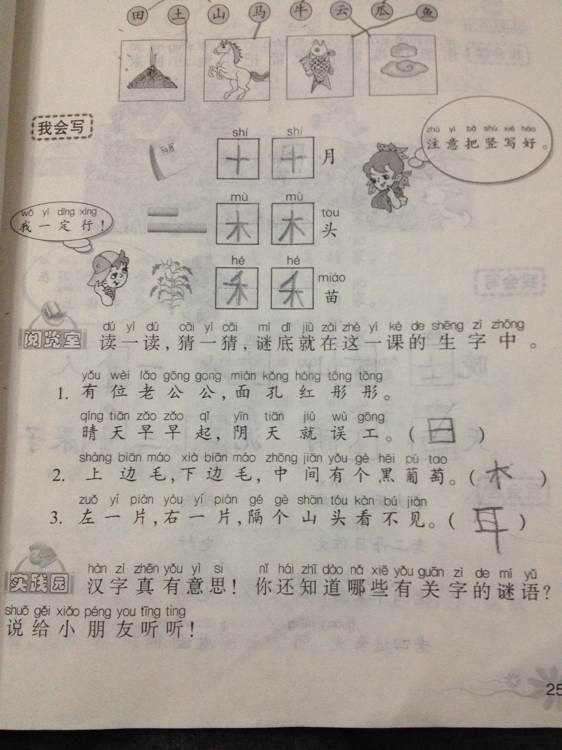 田 土 山 马 牛 云 瓜 鱼
我会写
zhù yì bǎ shù xiě hǎo
注意把竖写好。
shí shí
十 十 月
mù mù tou
木 木 头
wǒ yī dìng xíng
我一定行！
hé hé miáo
禾 禾 苗
阅览室
dú yī dú cāi yī cāi mí dǐ jiù zài zhè yī kè de shēng zì zhōng
读一读，猜一猜，谜底就在这一课的生字中。
yǒu wèi lǎo gōng gong miàn kǒng hóng tōng tōng
1. 有位老公公，面孔红彤彤。
qíng tiān zǎo zǎo qǐ yīn tiān jiù wù gōng
晴天早早起，阴天就误工。（日）
shàng biān máo xià biān máo zhōng jiān yǒu gè hēi pú tao
2. 上边毛，下边毛，中间有个黑葡萄。（木）
zuǒ yī piàn yòu yī piàn gé gè shān tóu kàn bú jiàn
3. 左一片，右一片，隔个山头看不见。（耳）
实践园
hàn zì zhēn yǒu yì si nǐ hái zhī dào nǎ xiē yǒu guān zì de mí yǔ
汉字真有意思！你还知道哪些有关字的谜语？
shuō gěi xiǎo péng you tīng ting
说给小朋友听听！
25